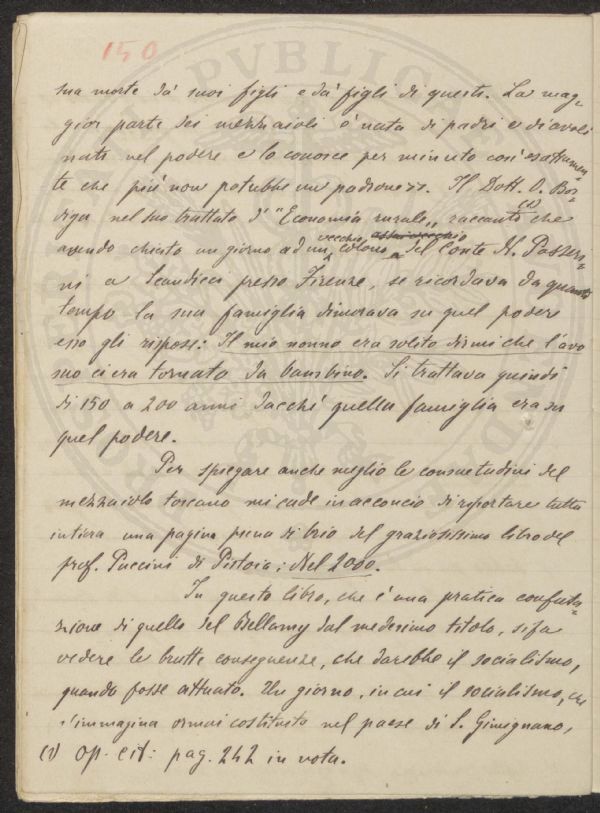 150
sua morte da' suoi figli e da' figli di questi. La mag-
gior parte dei mezzaioli è nata di padri e di avoli
nati nel podere e lo conosce per minuto così esattamen-
te che più non potrebbe un padrone >>. Il Dott. O. Bor-
diga nel suo trattato d' "Economia rurale,, racconta (1) che
avendo chiesto un giorno ad un vecchio colono assai vecchio del Conte N. Passeri-
ni a Scandicci presso Firenze, se ricordava da quanto
tempo la sua famiglia dimorava su quel podere
esso gli rispose: Il mio nonno era solito dirmi che l'avo
suo ci era tornato da bambino. Si trattava quindi
di 150 a 200 anni dacchè quella famiglia era su
quel podere.
Per spiegare anche meglio le consuetudini del
mezzaiolo toscano mi cade in acconcio di riportare tutta
intiera una pagina piena di brio del graziosissimo libro del
prof. Puccini di Pistoia: Nel 2000.
In questo libro, che è una pratica confuta-
zione di quello del Bellamy dal medesimo titolo, si fa
vedere le brutte conseguenze, che darebbe il socialismo,
quando fosse attuato. Un giorno, in cui il socialismo, che
s'immagina ormai costituito nel paese di S. Gimignano,
(1) Op. cit: pag. 242 in nota.
PVBLIC